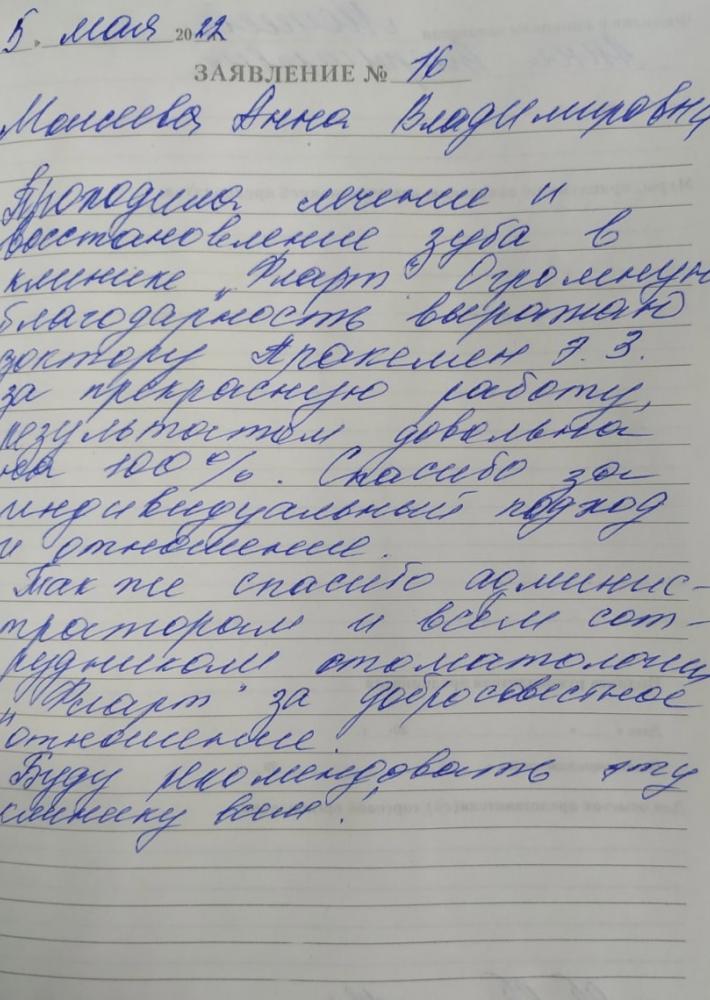 5 мая 2022
ЗАЯВЛЕНИЕ № 16
Моисеева Анна Владимировна
Проходила лечение и
восстановление зуба в
клинике „Фларт" Огромную
благодарность выражаю
доктору Аракемен Э. З.
за прекрасную работу,
результатом довольна
на 100%. Спасибо за
индивидуальный подход
и отношение.
Так же спасибо админис-
траторам и всем сот-
рудникам стоматологии
„Фларт" за добросовестное
отношение.
Буду рекомендовать эту
клинику всем.